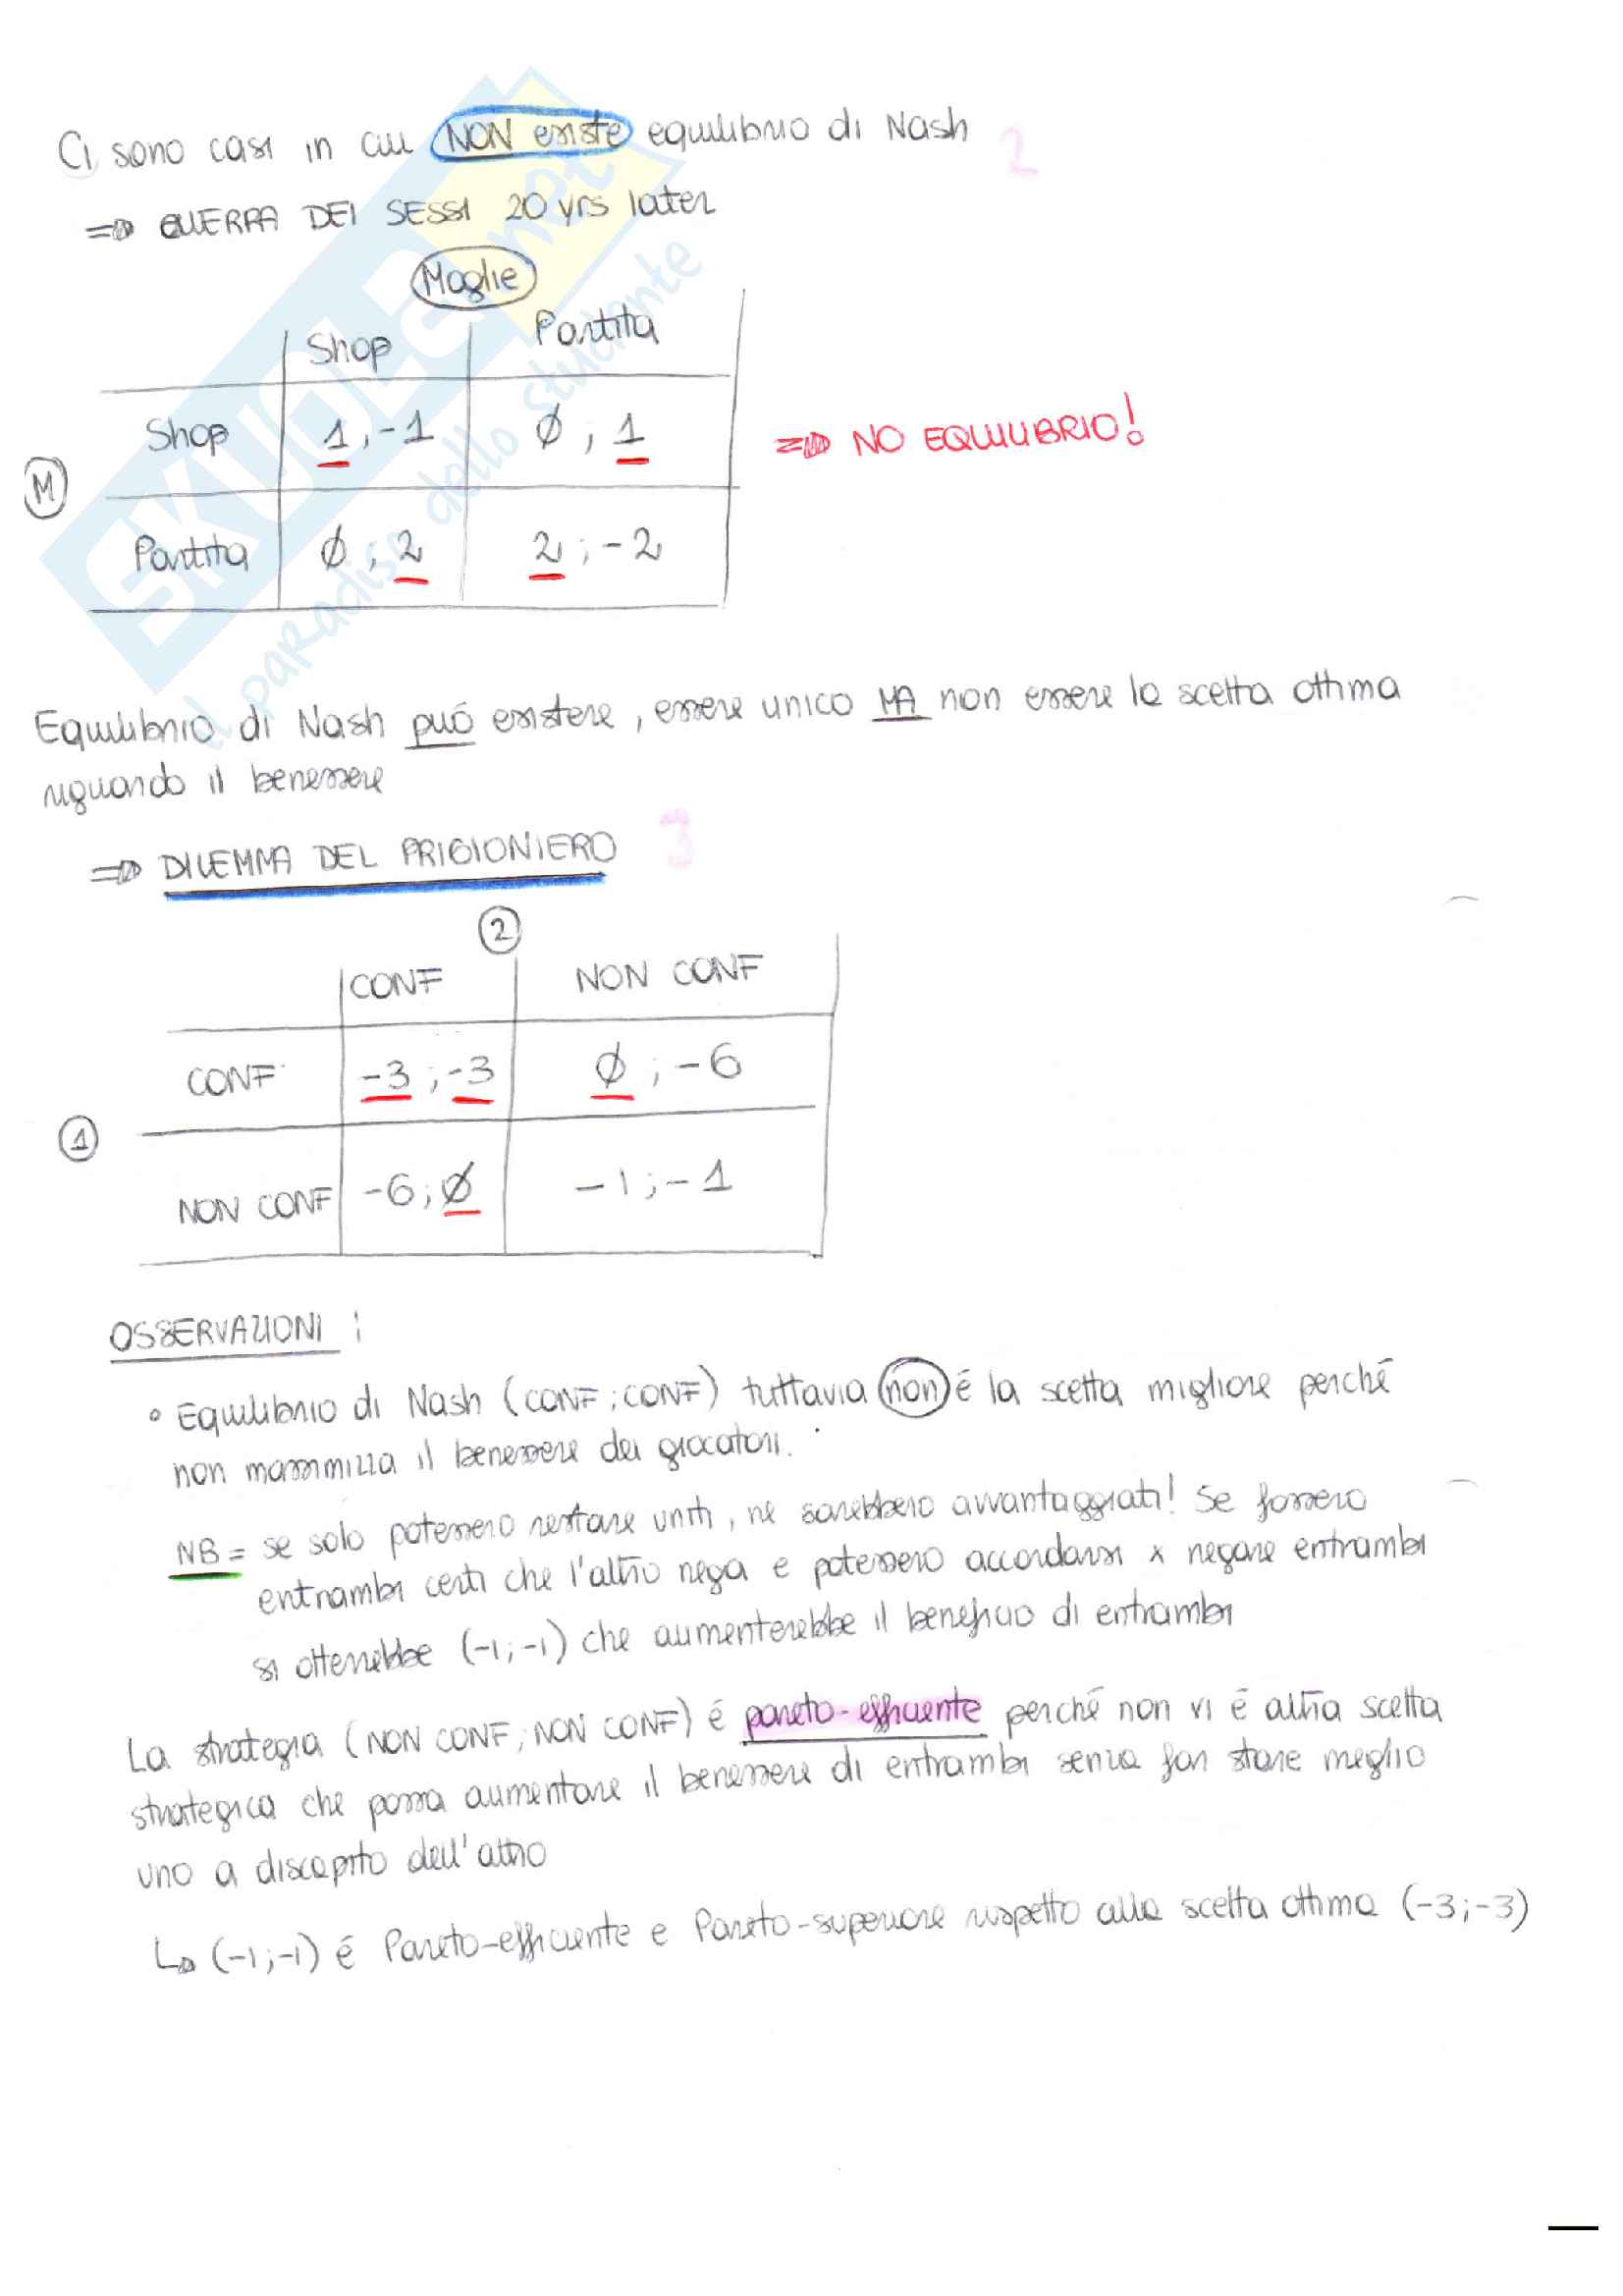 Ci sono casi in cui NON esiste equilibrio di Nash 2
=> GUERRA DEI SESSI 20 yrs later
Moglie
Shop Partita
Shop 1 , -1 Ø ; 1 => NO EQUILIBRIO!
M
Partita Ø ; 2 2 ; -2
SKUOLA.net
il paradiso dello studente
Equilibrio di Nash può esistere, essere unico MA non essere la scelta ottima
riguardo il benessere
=> DILEMMA DEL PRIGIONIERO 3
2
CONF NON CONF
CONF -3 ; -3 Ø ; -6
1
NON CONF -6 ; Ø -1 ; -1
OSSERVAZIONI :
• Equilibrio di Nash (CONF ; CONF) tuttavia non é la scelta migliore perché
non massimizza il benessere dei giocatori.
NB = se solo potessero restare uniti, ne sarebbero avvantaggiati! Se fossero
entrambi certi che l'altro nega e potessero accordarsi x negare entrambi
si otterrebbe (-1 ; -1) che aumenterebbe il beneficio di entrambi
La strategia (NON CONF ; NON CONF) é pareto-efficiente perché non vi é altra scelta
strategica che possa aumentare il benessere di entrambi senza far stare meglio
uno a discapito dell'altro
↳ (-1 ; -1) é Pareto-efficiente e Pareto-superiore rispetto alla scelta ottima (-3 ; -3)